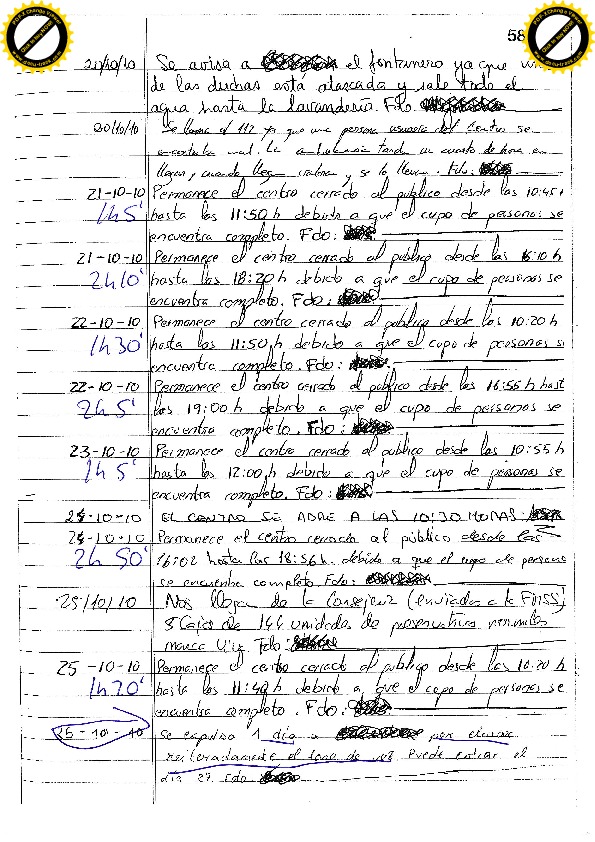 58
20/10/10 Se avisa a el fontanero ya que una
de las duchas está atascada y sale todo el
agua hasta la lavandería. Fdo.
20/10/10 Se llama al 112 ya que una persona usuaria del Centro se
encontraba mal. La ambulancia tarda un cuarto de hora en
llegar, y cuando llega y se lo llevan. Fdo:
21-10-10 Permanece el centro cerrado al público desde las 10:45h
1h 5' hasta las 11:50 h debido a que el cupo de personas se
encuentra completo. Fdo:
21-10-10 Permanece el centro cerrado al público desde las 16:10 h
2h 10' hasta las 18:20 h debido a que el cupo de personas se
encuentra completo. Fdo:
22-10-10 Permanece el centro cerrado al público desde las 10:20 h
1h 30' hasta las 11:50 h debido a que el cupo de personas se
encuentra completo. Fdo:
22-10-10 Permanece el centro cerrado al público desde las 16:55 h hasta
2h 5' las 19:00 h debido a que el cupo de personas se
encuentra completo. Fdo:
23-10-10 Permanece el centro cerrado al público desde las 10:55 h
1h 5' hasta las 12:00 h debido a que el cupo de personas se
encuentra completo. Fdo:
24-10-10 EL CENTRO SE ABRE A LAS 10:30 HORAS
24-10-10 Permanece el centro cerrado al público desde las
2h 50' 16:02 hasta las 18:56h. debido a que el cupo de personas
se encuentra completo Fdo:
25/10/10 Nos llegan de la Consejería (enviadas a la FMSS)
8 Cajas de 144 unidades de preservativos
marca Fdo:
25-10-10 Permanece el centro cerrado al público desde las 10:20 h
1h 20' hasta las 11:40 h debido a que el cupo de personas se
encuentra completo. Fdo:
25-10-10 Se expulsa 1 día a por
reiteradamente el tono de voz. Puede entrar el
día 27. Fdo.